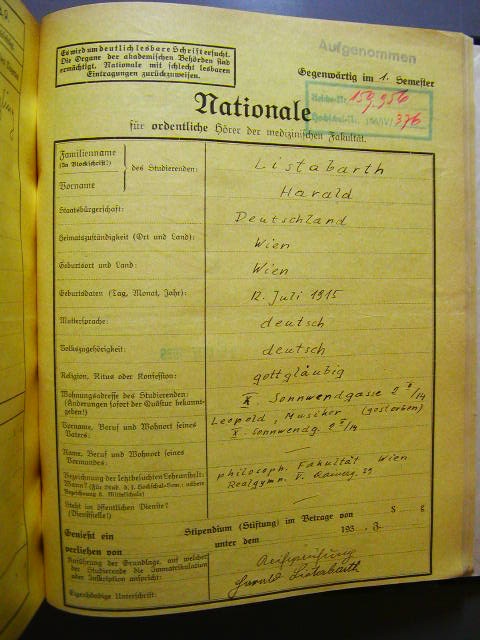 Es wird um deutlich lesbare Schrift ersucht.
Die Organe der akademischen Behörden sind
ermächtigt, Nationale mit schlecht lesbaren
Eintragungen zurückzuweisen.
Aufgenommen
Gegenwärtig im 1. Semester
Nationale
159,956
376
für ordentliche Hörer der medizinischen Fakultät.
Familienname
(In Blockschrift!)
des Studierenden:
Listabarth
Vorname
Harald
Staatsbürgerschaft:
Deutschland
Heimatzuständigkeit (Ort und Land):
Wien
Geburtsort und Land:
Wien
Geburtsdaten (Tag, Monat, Jahr):
12. Juli 1915
Muttersprache:
deutsch
Volkszugehörigkeit:
deutsch
Religion, Ritus oder Konfession:
gottgläubig
Wohnungsadresse des Studierenden:
(Änderungen sofort der Quästur bekannt-
geben!)
X. Sonnwendgasse 2 /14
Vorname, Beruf und Wohnort seines
Vaters:
Leopold, Musiker (gestorben)
X. Sonnwendg. 2 /14
Name, Beruf und Wohnort seines
Vormundes:
—
Bezeichnung der letztbesuchten Lehranstalt:
Wann?
Bezeichnung d. Mittelschule)
philosoph. Fakultät Wien
Realgymn. V.
Steht im öffentlichen Dienste?
(Dienststelle!)
—
Genießt ein
Stipendium (Stiftung) im Betrage von S g
verliehen von
unter dem 193 , Z.
Anführung der Grundlage, auf welcher
der Studierende die Immatrikulation
oder Inskription anspricht:
Reifeprüfung
Eigenhändige Unterschrift:
Harald Listabarth